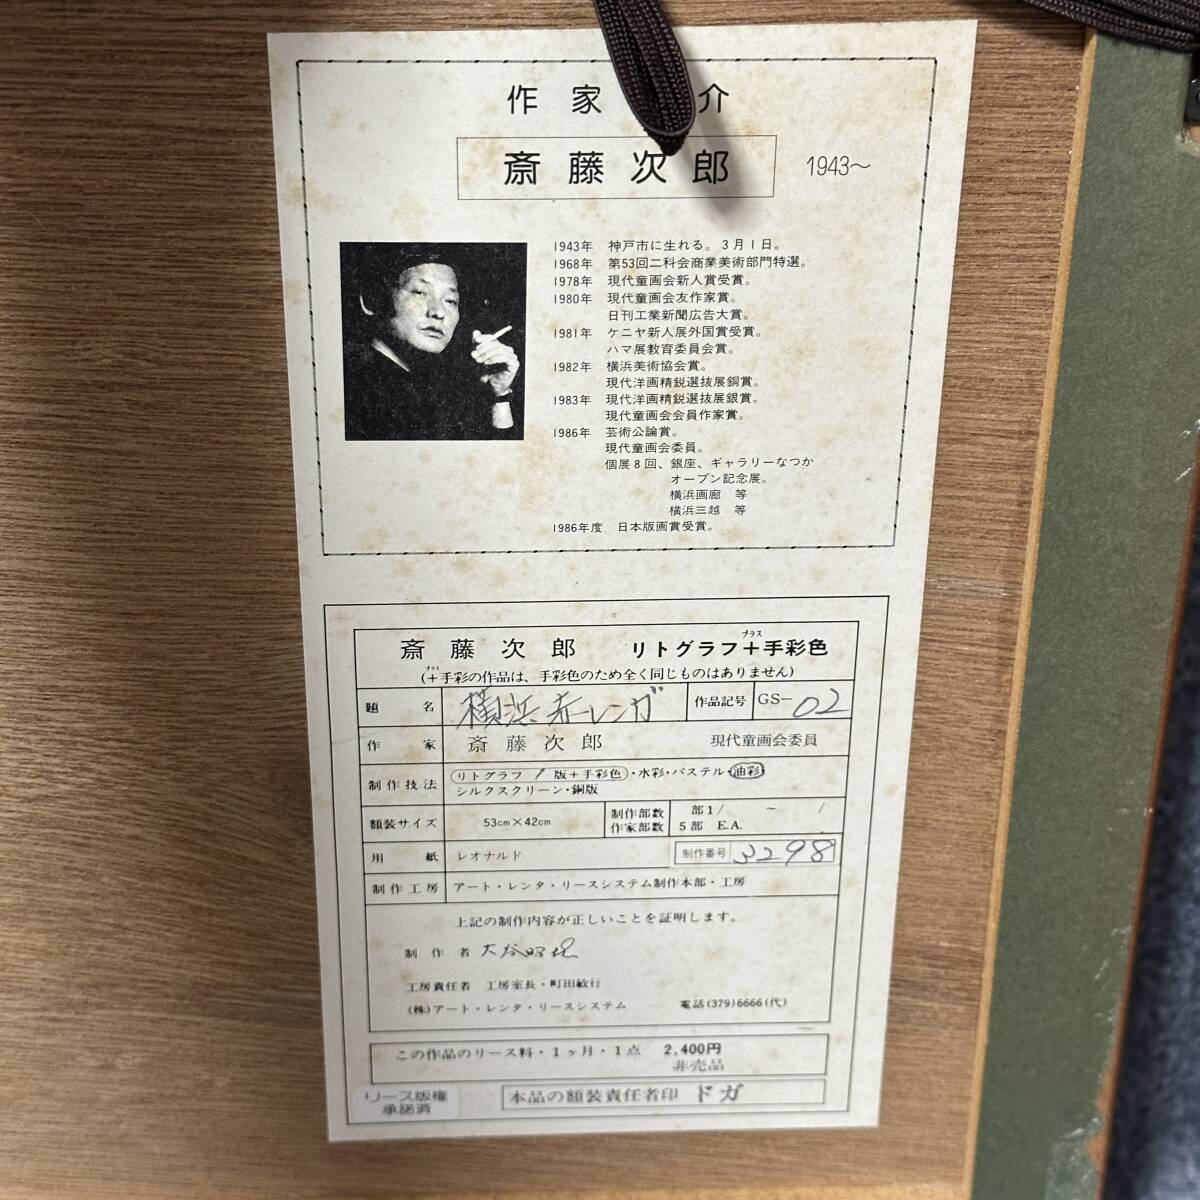 作家 介
斎藤次郎 1943〜
1943年 神戸市に生れる。3月1日。
1968年 第53回二科会商業美術部門特選。
1978年 現代童画会新人賞受賞。
1980年 現代童画会友作家賞。
日刊工業新聞広告大賞。
1981年 ケニヤ新人展外国賞受賞。
ハマ展教育委員会賞。
1982年 横浜美術協会賞。
現代洋画精鋭選抜展銅賞。
1983年 現代洋画精鋭選抜展銀賞。
現代童画会会員作家賞。
1986年 芸術公論賞。
現代童画会委員。
個展8回、銀座、ギャラリーなつか
オープン記念展。
横浜画廊 等
横浜三越 等
1986年度 日本版画賞受賞。
斎藤次郎 リトグラフ+手彩色
プラス
(+手彩の作品は、手彩色のため全く同じものはありません)
プラス
題名 横浜赤レンガ 作品記号 GS-02
作家 斎藤次郎 現代童画会委員
制作技法 リトグラフ 版+手彩色・水彩・パステル・油彩
シルクスクリーン・銅版
額装サイズ 53cm×42cm 制作部数 部1/ 〜 /
作家部数 5部 E.A.
用紙 レオナルド 制作番号 3298
制作工房 アート・レンタ・リースシステム制作本部・工房
上記の制作内容が正しいことを証明します。
制作者
工房責任者 工房室長・町田敏行
(株)アート・レンタ・リースシステム 電話(379)6666(代)
この作品のリース料・1ヶ月・1点 2,400円
非売品
リース版権
承諾済
本品の額装責任者印 ドガ